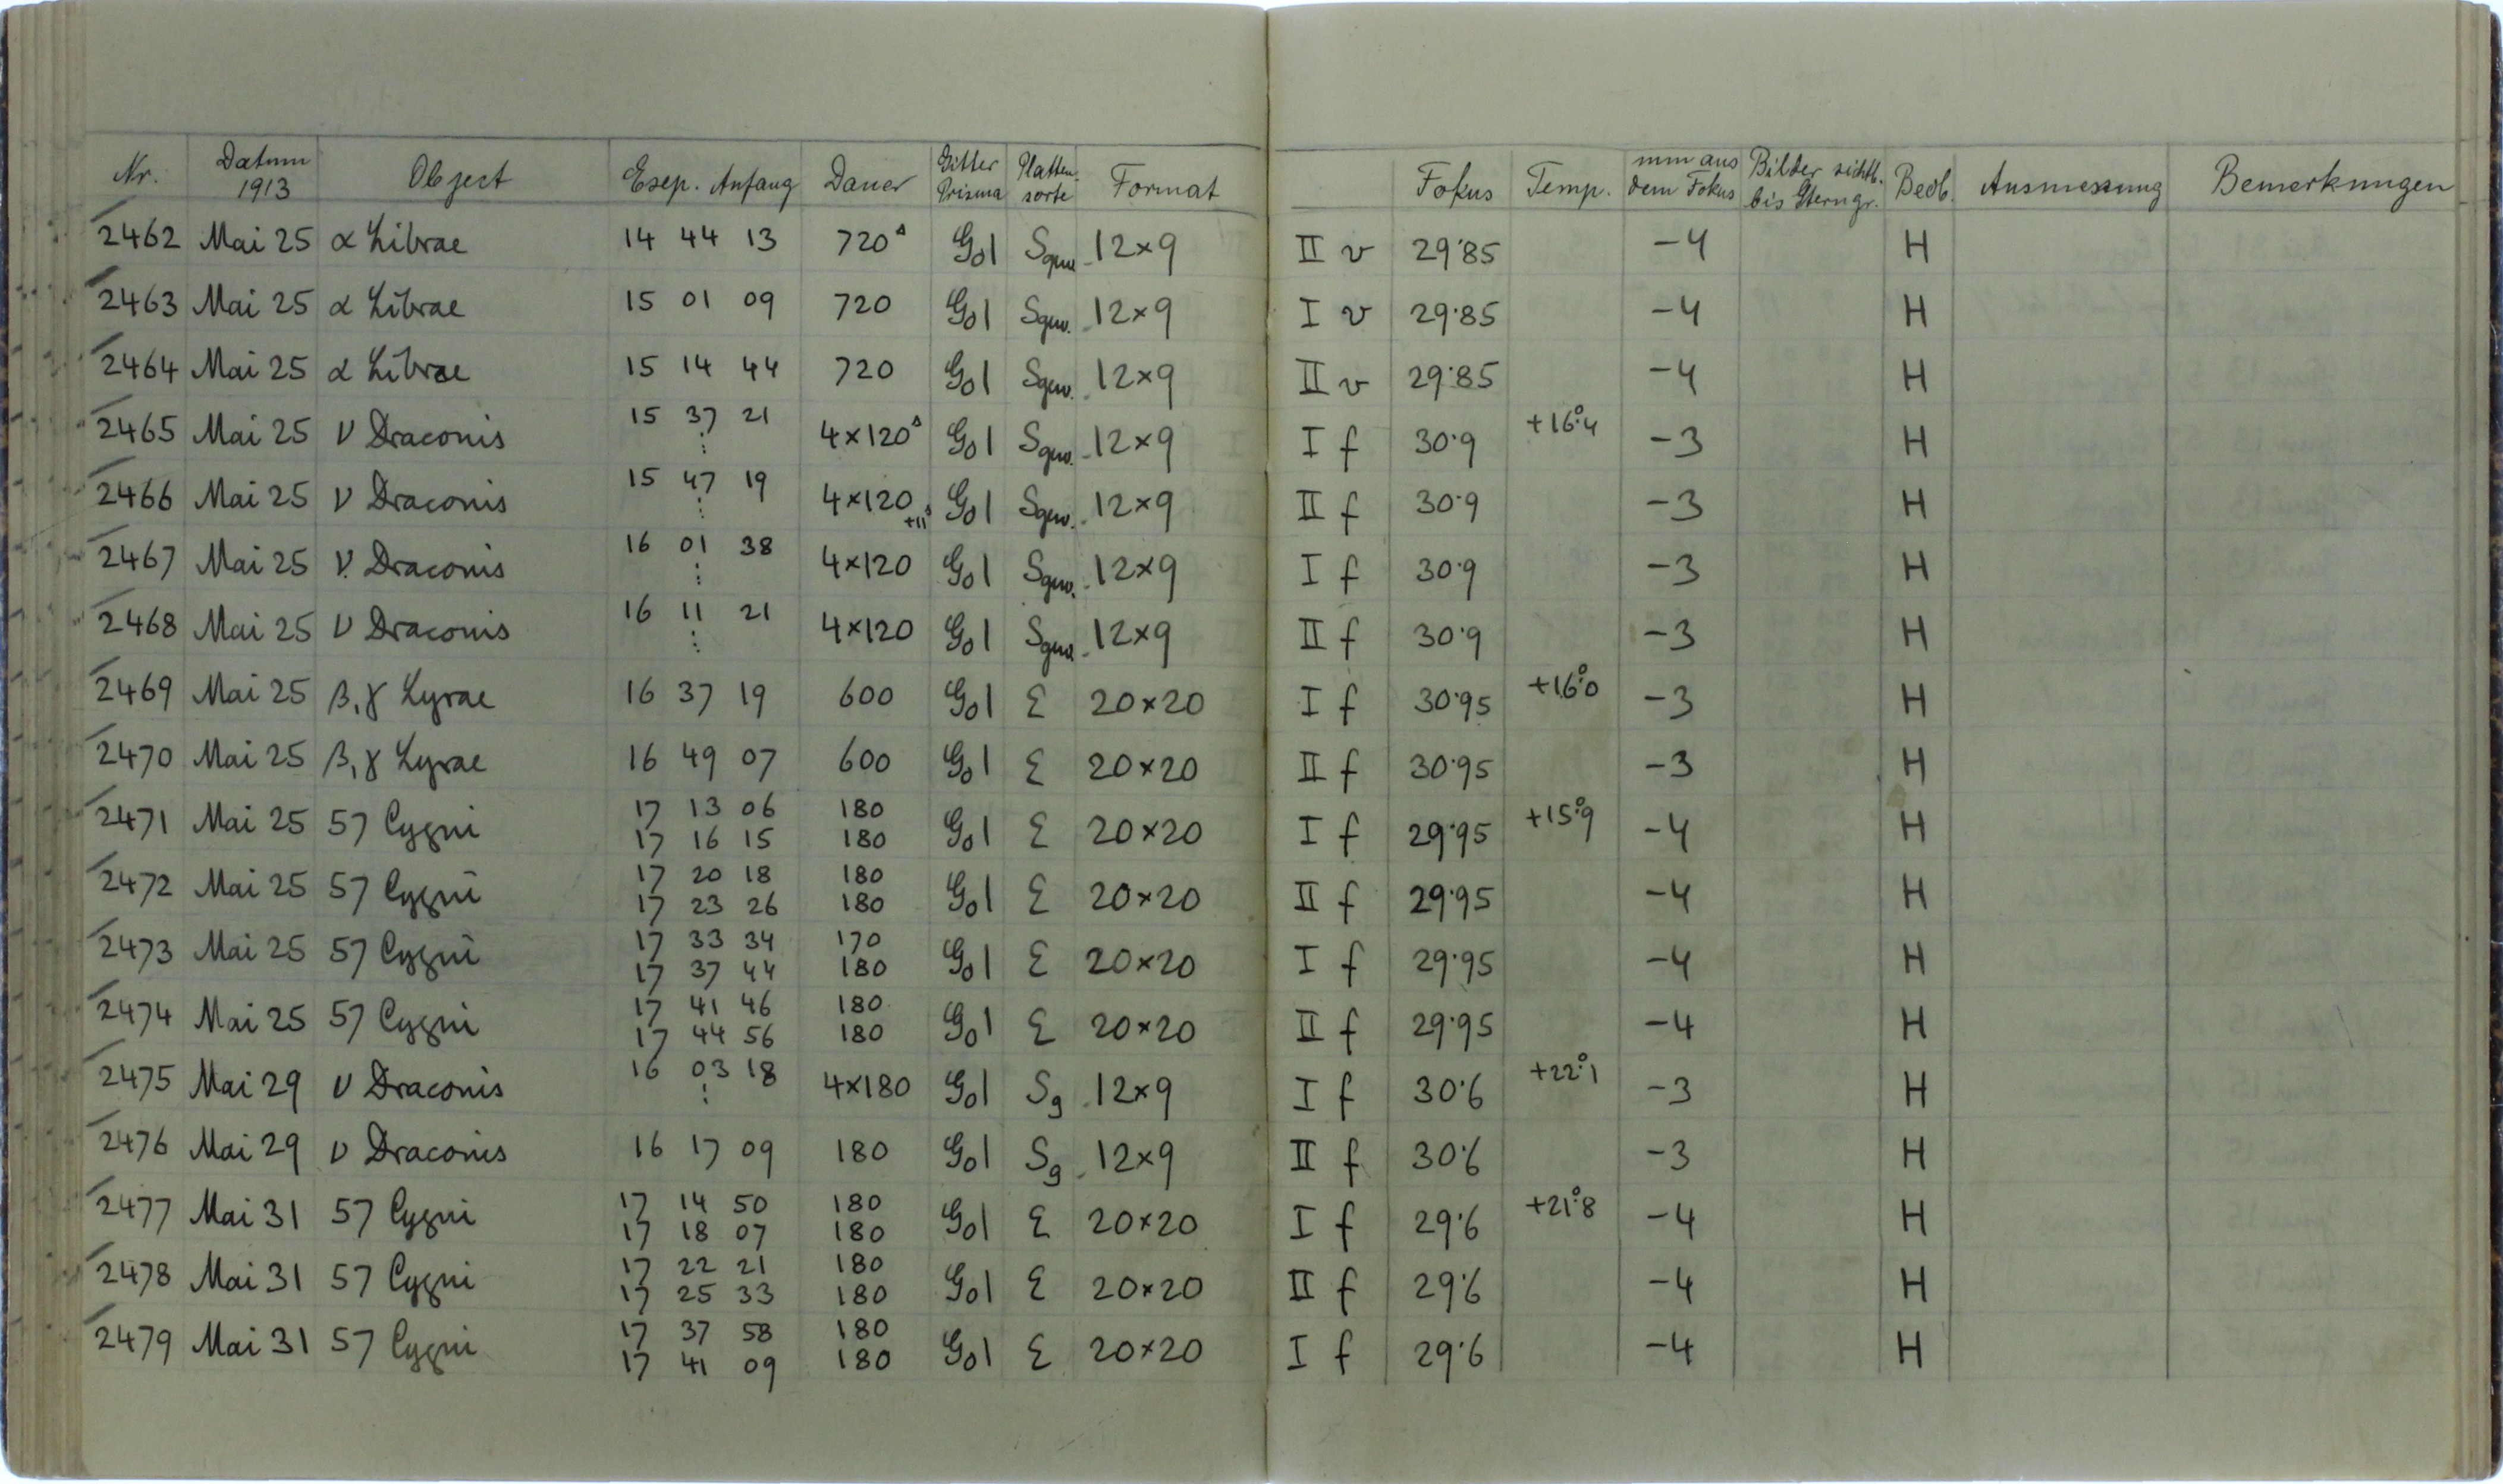 Nr. Datum 1913 Object Exp. Anfang Dauer Gitter Prisma Platten-sorte Format Fokus Temp. mm aus dem Fokus Bilder sichtb. bis Sterngr. Beob. Ausmessung Bemerkungen
2462 Mai 25 α Librae 14 44 13 720ˢ G01 Sgw. 12×9 II v 29·85 -4 H
2463 Mai 25 α Librae 15 01 09 720 G01 Sgw. 12×9 I v 29·85 -4 H
2464 Mai 25 α Librae 15 14 44 720 G01 Sgw. 12×9 II v 29·85 -4 H
2465 Mai 25 ν Draconis 15 37 21 ⋮ 4×120ˢ G01 Sgw. 12×9 I f 30·9 +16°.4 -3 H
2466 Mai 25 ν Draconis 15 47 19 ⋮ 4×120 +11ˢ G01 Sgw. 12×9 II f 30·9 -3 H
2467 Mai 25 ν Draconis 16 01 38 ⋮ 4×120 G01 Sgw. 12×9 I f 30·9 -3 H
2468 Mai 25 ν Draconis 16 11 21 ⋮ 4×120 G01 Sgw. 12×9 II f 30·9 -3 H
2469 Mai 25 β, γ Lyrae 16 37 19 600 G01 Σ 20×20 I f 30·95 +16°.0 -3 H
2470 Mai 25 β, γ Lyrae 16 49 07 600 G01 Σ 20×20 II f 30·95 -3 H
2471 Mai 25 57 Cygni 17 13 06 180 G01 Σ 20×20 I f 29·95 +15°.9 -4 H
17 16 15 180
2472 Mai 25 57 Cygni 17 20 18 180 G01 Σ 20×20 II f 29·95 -4 H
17 23 26 180
2473 Mai 25 57 Cygni 17 33 34 170 G01 Σ 20×20 I f 29·95 -4 H
17 37 44 180
2474 Mai 25 57 Cygni 17 41 46 180 G01 Σ 20×20 II f 29·95 -4 H
17 44 56 180
2475 Mai 29 ν Draconis 16 03 18 ⋮ 4×180 G01 Sg 12×9 I f 30·6 +22°.1 -3 H
2476 Mai 29 ν Draconis 16 17 09 180 G01 Sg 12×9 II f 30·6 -3 H
2477 Mai 31 57 Cygni 17 14 50 180 G01 Σ 20×20 I f 29·6 +21°.8 -4 H
17 18 07 180
2478 Mai 31 57 Cygni 17 22 21 180 G01 Σ 20×20 II f 29·6 -4 H
17 25 33 180
2479 Mai 31 57 Cygni 17 37 58 180 G01 Σ 20×20 I f 29·6 -4 H
17 41 09 180